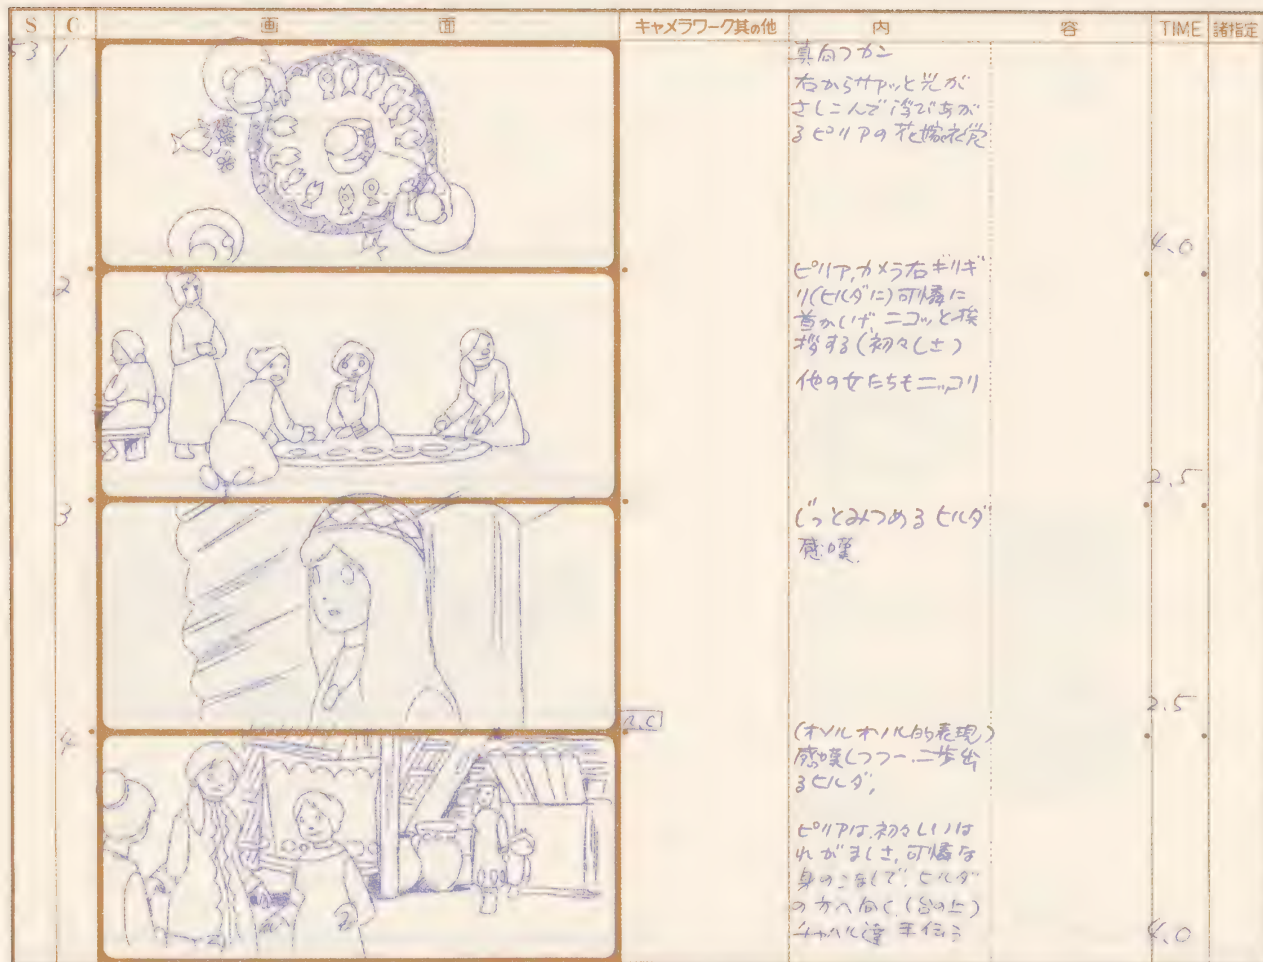 S C 画 面 キャメラワーク其の他 内 容 TIME 諸指定
53 1
真向フカン
右からサアッと光が
さしこんで浮びあが
るピリアの花嫁衣裳
4.0
2
ピリア,カメラ右ギリギ
リ(ヒルダに)可憐に
首かしげ,ニコッと挨
拶する(初々しさ)
他の女たちもニッコリ
2.5
3
じっとみつめるヒルダ
感嘆.
2.5
4
(オソルオソル的表現)
感嘆しつつ一、二歩出
るヒルダ,
ピリアは,初々しいは
れがましさ,可憐な
身のこなしで,ヒルダ
の方へ向く(台の上)
達 手伝う
4.0